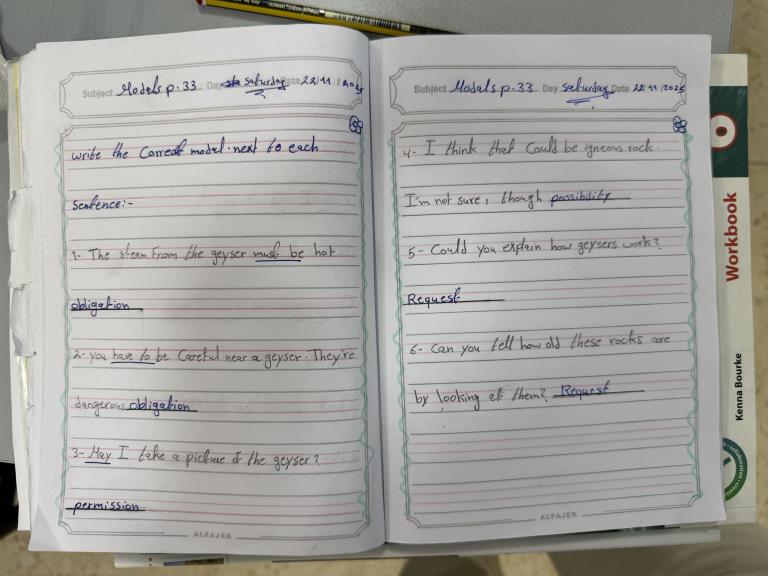 Subject Modals p. 33 Day saturday Date 22/11/2025
write the Correct modal next to each
Sentence:-
1- The steam from the geyser must be hot
obligation
2- you have to be Careful near a geyser. They're
dangerous obligation
3- May I take a picture of the geyser?
permission
ALFAJER
Subject Modals p. 33 Day saturday Date 22/11/2025
4- I think that Could be igneous rock.
I'm not sure, though possibility
5- Could you explain how geysers work?
Request
6- Can you tell how old these rocks are
by looking at them? Request
ALFAJER
Workbook
Kenna Bourke